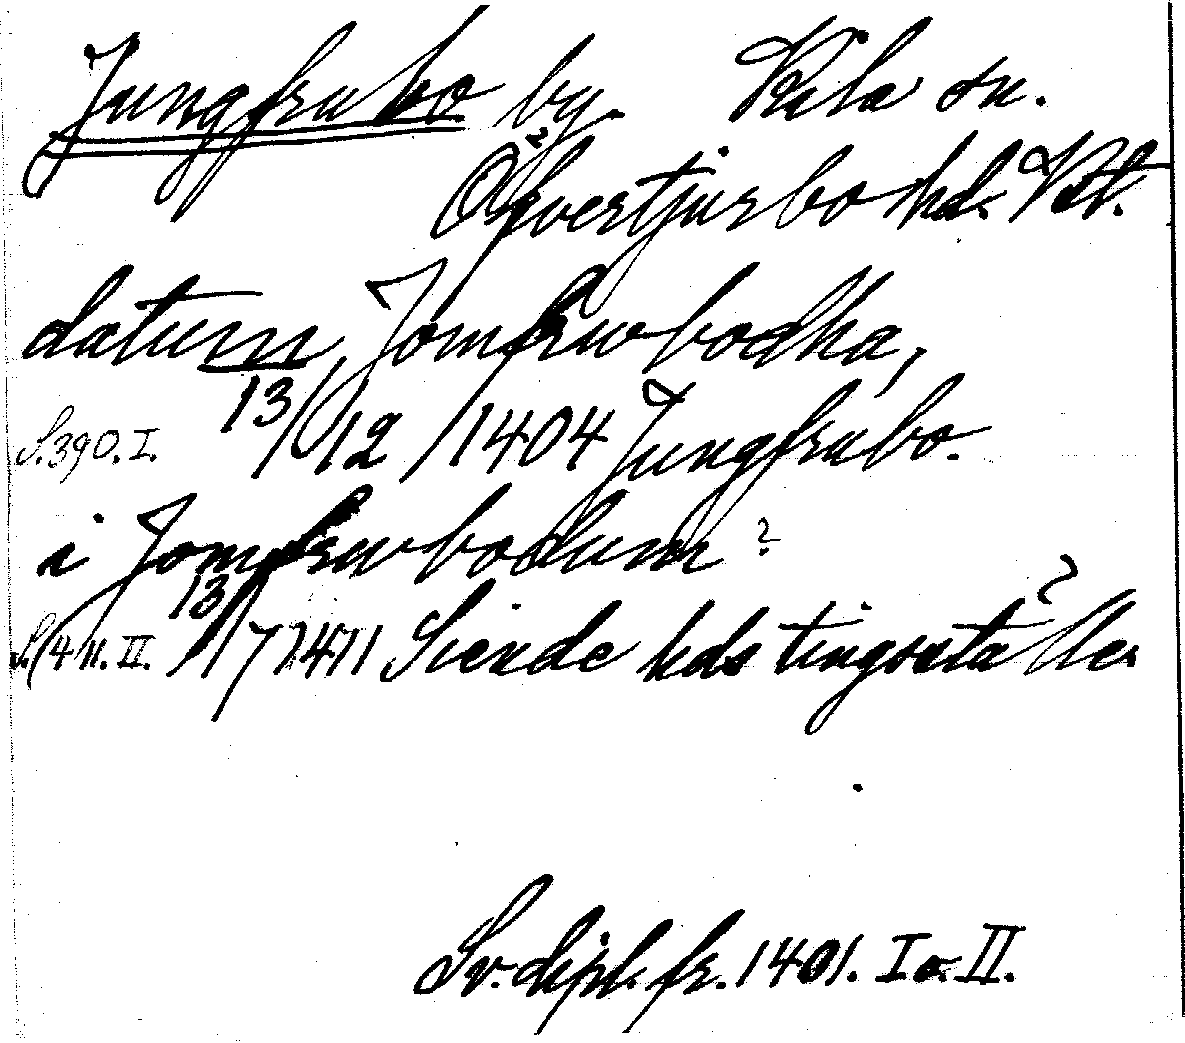 Jungfrubo by. Kila sn.
Övertjurbo hd. Vstm.
datum Jomfrwbodha,
S. 390. I. 13/12 1404 Jungfrubo.
i Jomfrwbodum ?
S. 411. II. 13/7 1411 Siende hds tingsställe ?
Sv. dipl. fr. 1401. I o. II.